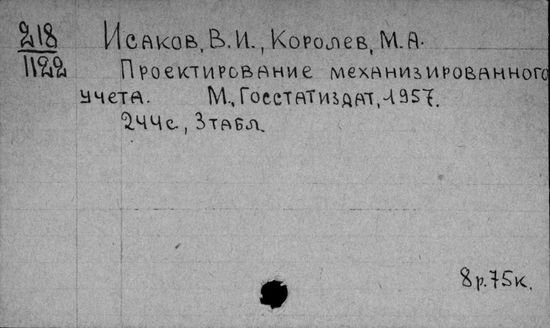 218
1122
Исаков, В.И., Королев, М.А.
Проектирование механизированного
учета. М., Госстатиздат, 1957.
244с., 3 табл.
8р.75к.